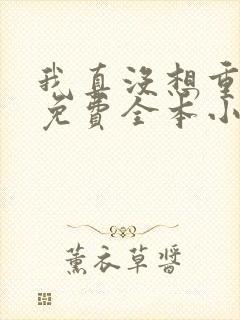 我真没想重
免费全本小
薰衣草酱